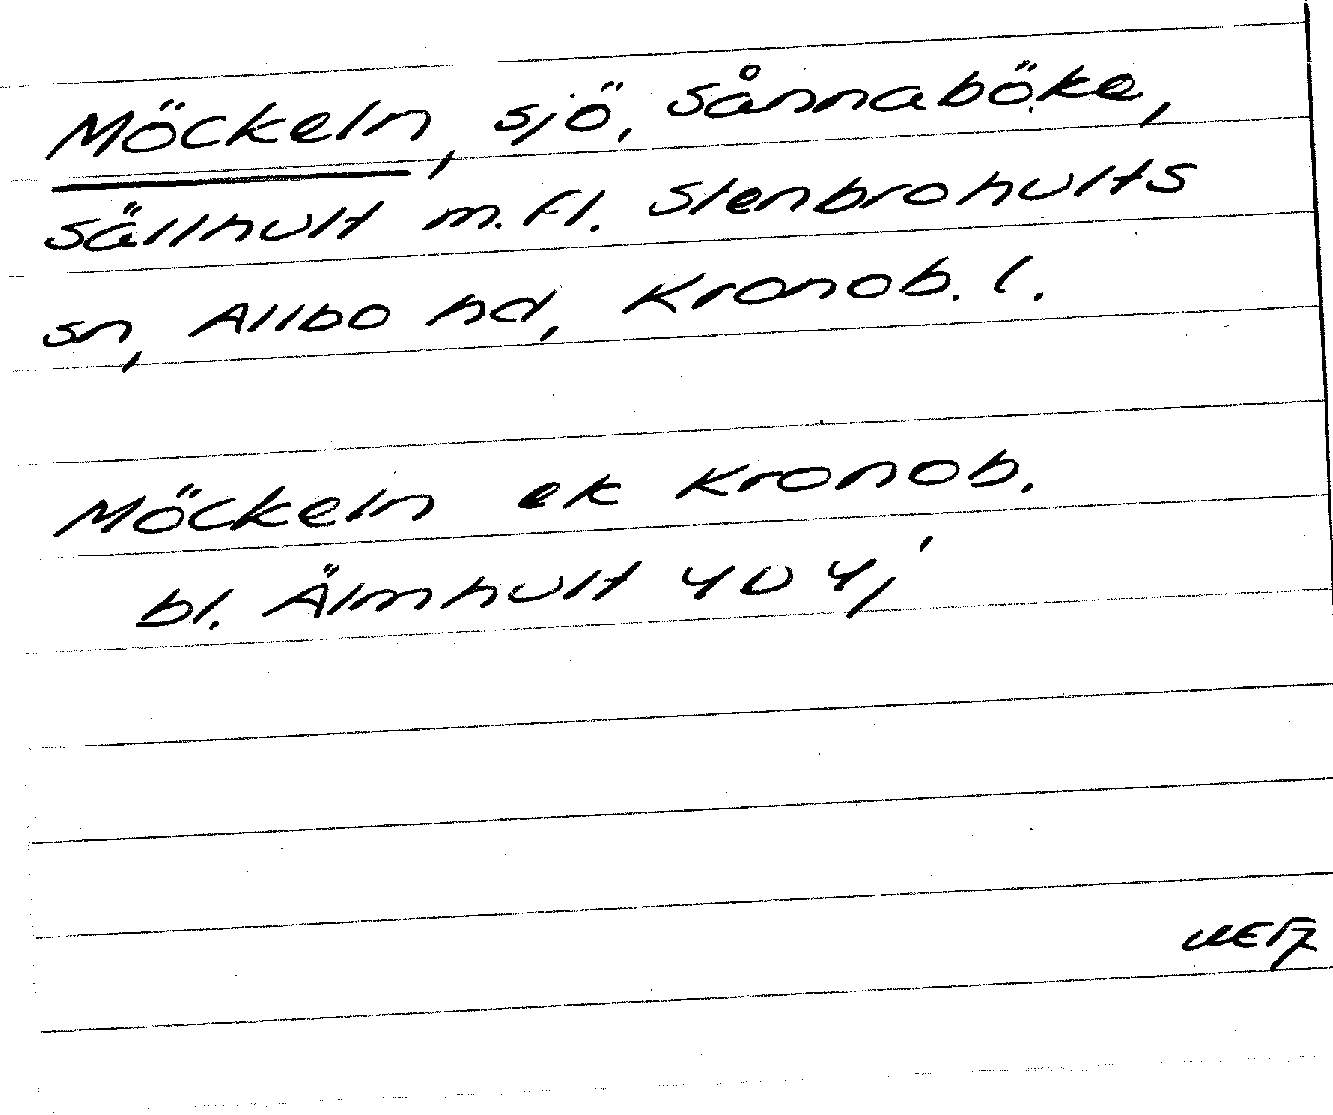 Möckeln, sjö, Sånnaböke,
Sällhult m.fl. Stenbrohults
sn, Allbo hd, Kronob. l.
Möckeln ek Kronob.
bl. Älmhult 404,